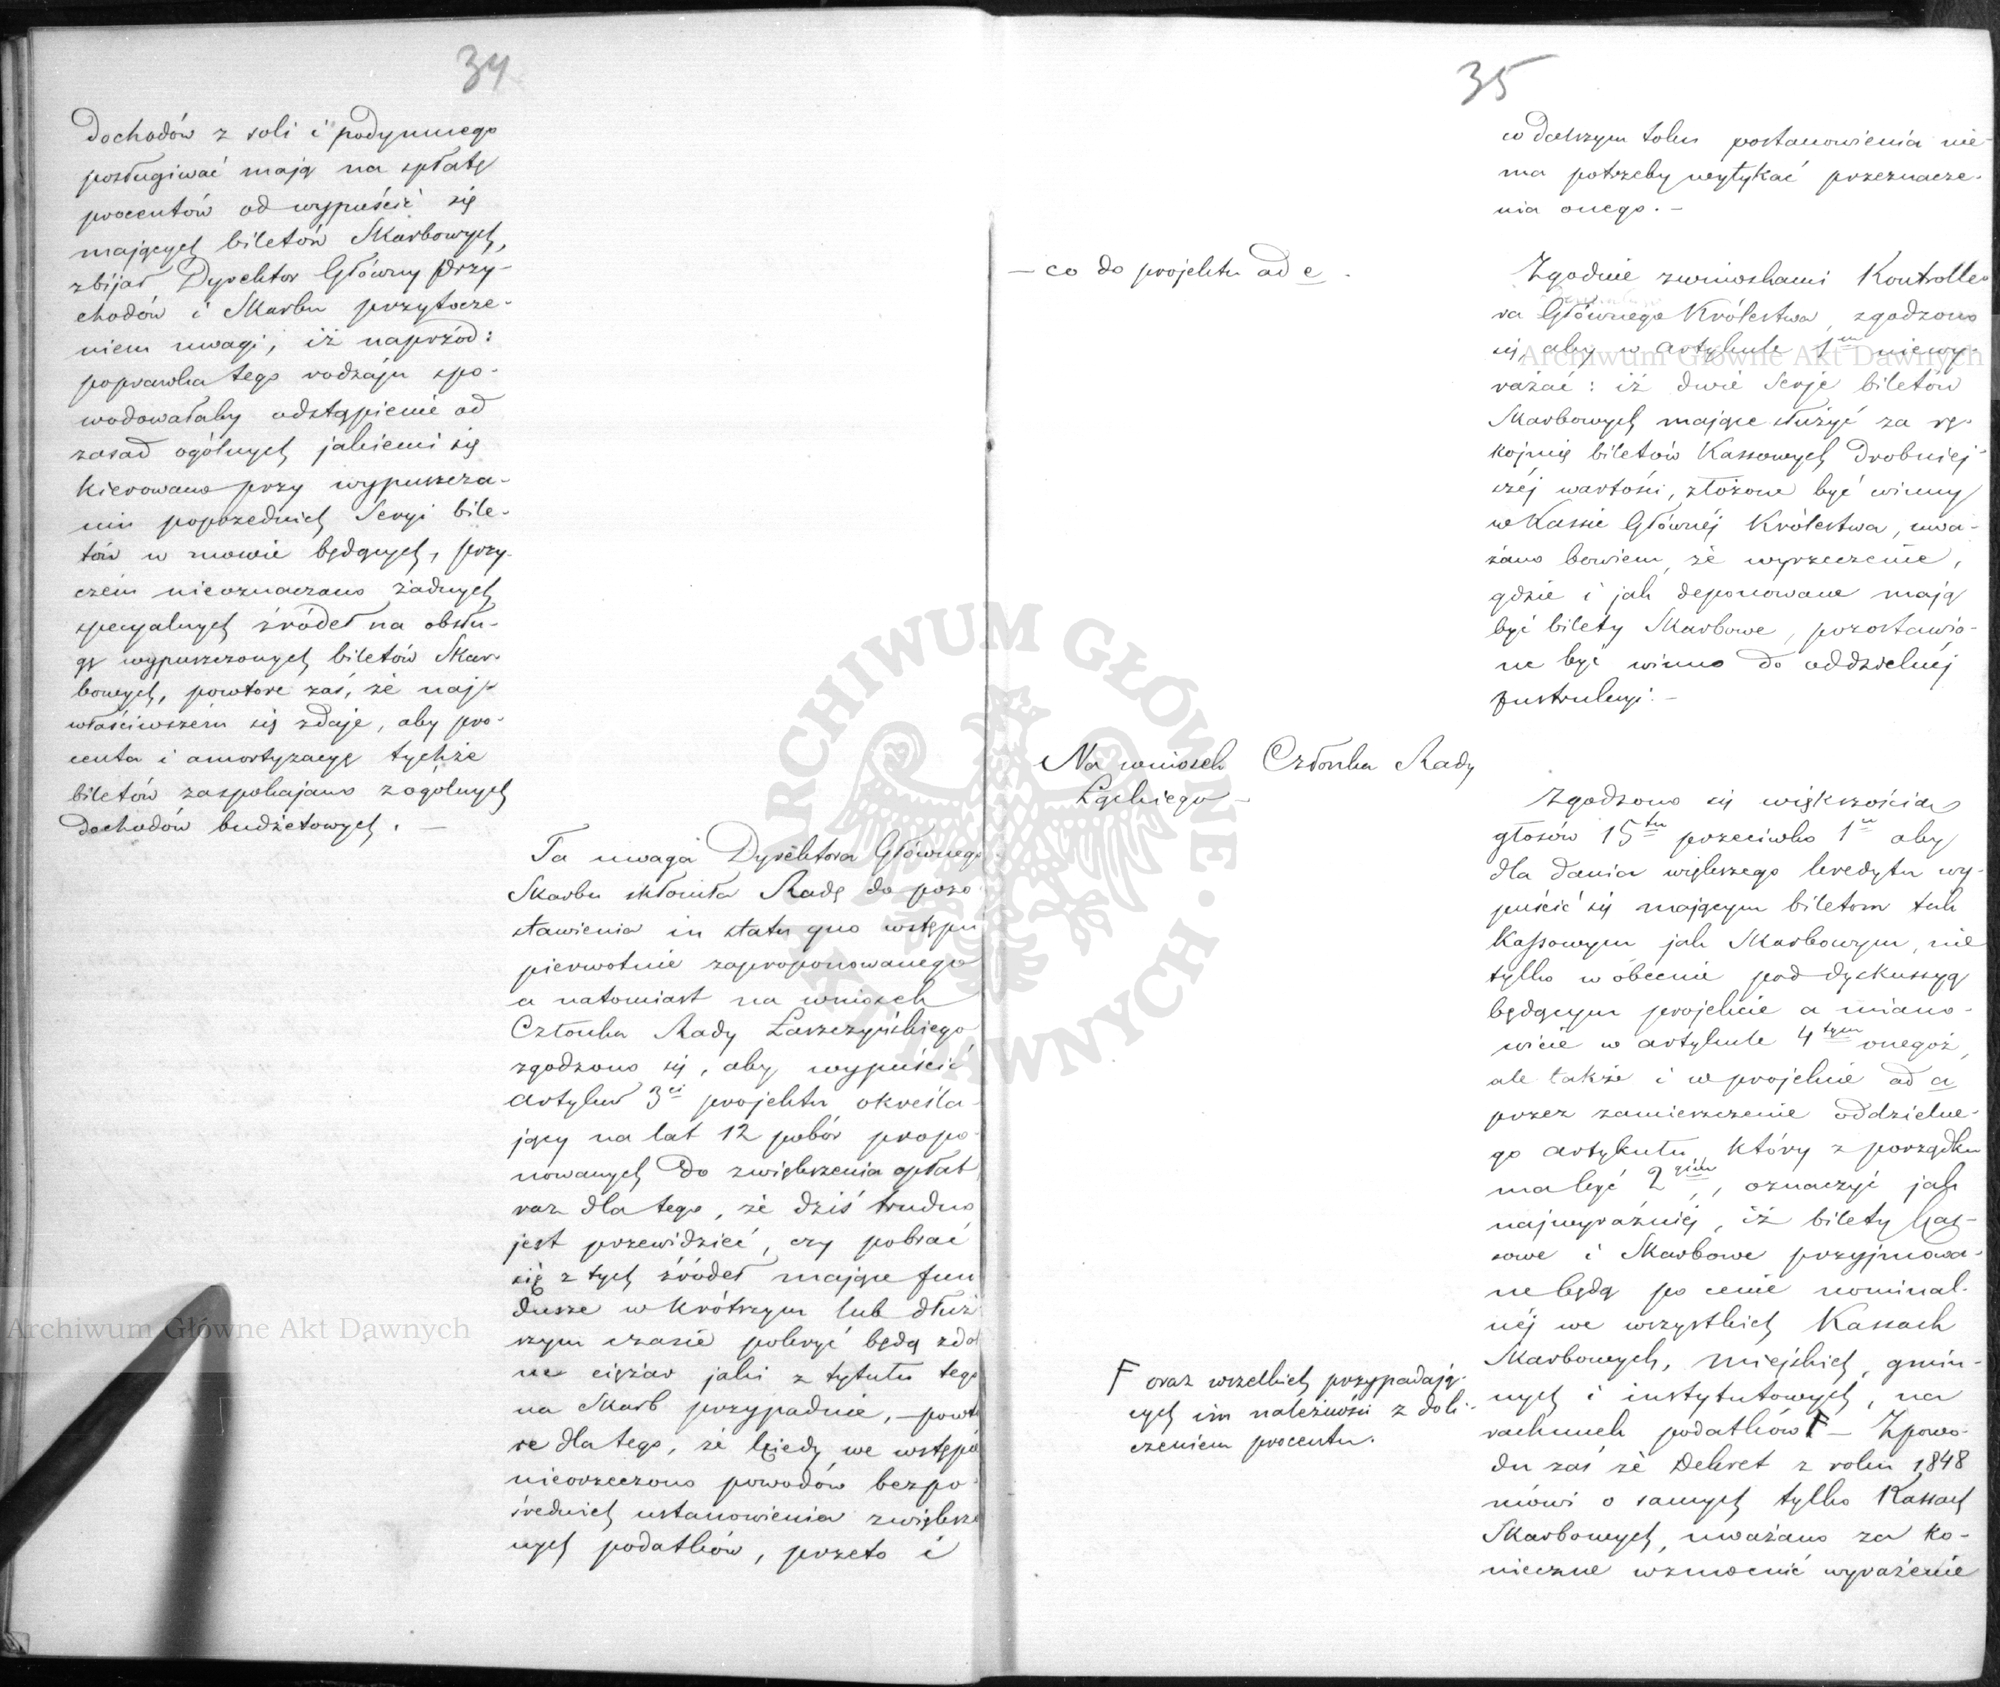 34
dochodów z soli i podymnego
posługiwać mają na spłatę
procentów od wypuścić się
mających biletów Skarbowych,
zbijał Dyrektor Główny Przy-
chodów i Skarbu przytocze-
niem uwagi, iż naprzód:
poprawka tego rodzaju spo-
wodowałaby odstąpienie od
zasad ogólnych jakiemi się
kierowano przy wypuszcza-
niu poprzednich Seryi bile-
tów w mowie będących, przy-
czém nieoznaczano żadnych
specyalnych źródeł na obsłu-
gę wypuszczonych biletów Skar-
bowych, powtóre zaś, że naj-
właściwszém się zdaje, aby pro-
centa i amortyzacyę tychże
biletów zaspokajano z ogólnych
dochodów budżetowych. —
Ta uwaga Dyrektora Głównego
Skarbu skłoniła Radę do pozo
stawienia in statu quo wstępu
pierwotnie zaproponowanego
a natomiast na wniosek
Członka Rady Łaszczyńskiego
zgodzono się, aby wypuścić
artykuł 3ci projektu określa-
jący na lat 12 pobór propo-
nowanych do zwiększenia opłat
raz dla tego, że dziś trudno
jest przewidzieć, czy pobrać
się z tych źródeł mające fun
dusze w krótszym lub dłuż
szym czasie pokryć będą zdol
ne ciężar jaki z tytułu tego
na Skarb przypadnie, — powtó
re dla tego, że kiedy we wstępie
nieorzeczono powodów bezpo-
średnich ustanowienia zwiększo
nych podatków, przeto i
35
w dalszym toku postanowienia nie-
ma potrzeby wytykać przeznacze-
nia onego. —
— co do projektu ad e.
Zgodnie z wnioskami Kontrolle-
ra Głównego Królestwa, zgodzono
się, aby w artykule 1m niewy-
rażać: iż dwie Serje biletów
Skarbowych mające służyć za rę-
kojmię biletów Kassowych drobniej-
széj wartości, złożone być winny
w Kassie Głównéj Królestwa, uwa-
żano bowiem, że wyrzeczenie,
gdzie i jak deponowane mają
być bilety Skarbowe, pozostawio-
ne być winno do oddzielnéj
Instrukcyi. —
Na wniosek Członka Rady
Łęckiego —
Zgodzono się większością
głosów 15tu przeciwko 1u aby
dla dania większego kredytu wy-
puścić się mającym biletom tak
Kassowym jak Skarbowym, nie
tylko w obecnie pod dyskussyą
będącym projekcie a miano-
wicie w artykule 4tym onegoż,
ale także i w projekcie ad a
przez zamieszczenie oddzielne-
go artykułu, który z porządku
ma być 2gim, oznaczyć jak
najwyraźniéj, iż bilety Kas-
sowe i Skarbowe przyjmowa-
ne będą po cenie nominal-
néj we wszystkich Kassach
Skarbowych, miejskich, gmin-
nych i instytutowych, na
rachunek podatków F — Z powo-
du zaś że Dekret z roku 1848
mówi o samych tylko Kassach
Skarbowych, uważano za ko-
nieczne wzmocnić wyrażenie
F oraz wszelkich przypadają-
cych im należności z doli-
czeniem procentu.
Archiwum Główne Akt Dawnych
Archiwum Główne Akt Dawnych
ARCHIWUM GŁÓWNE • AKT DAWNYCH •